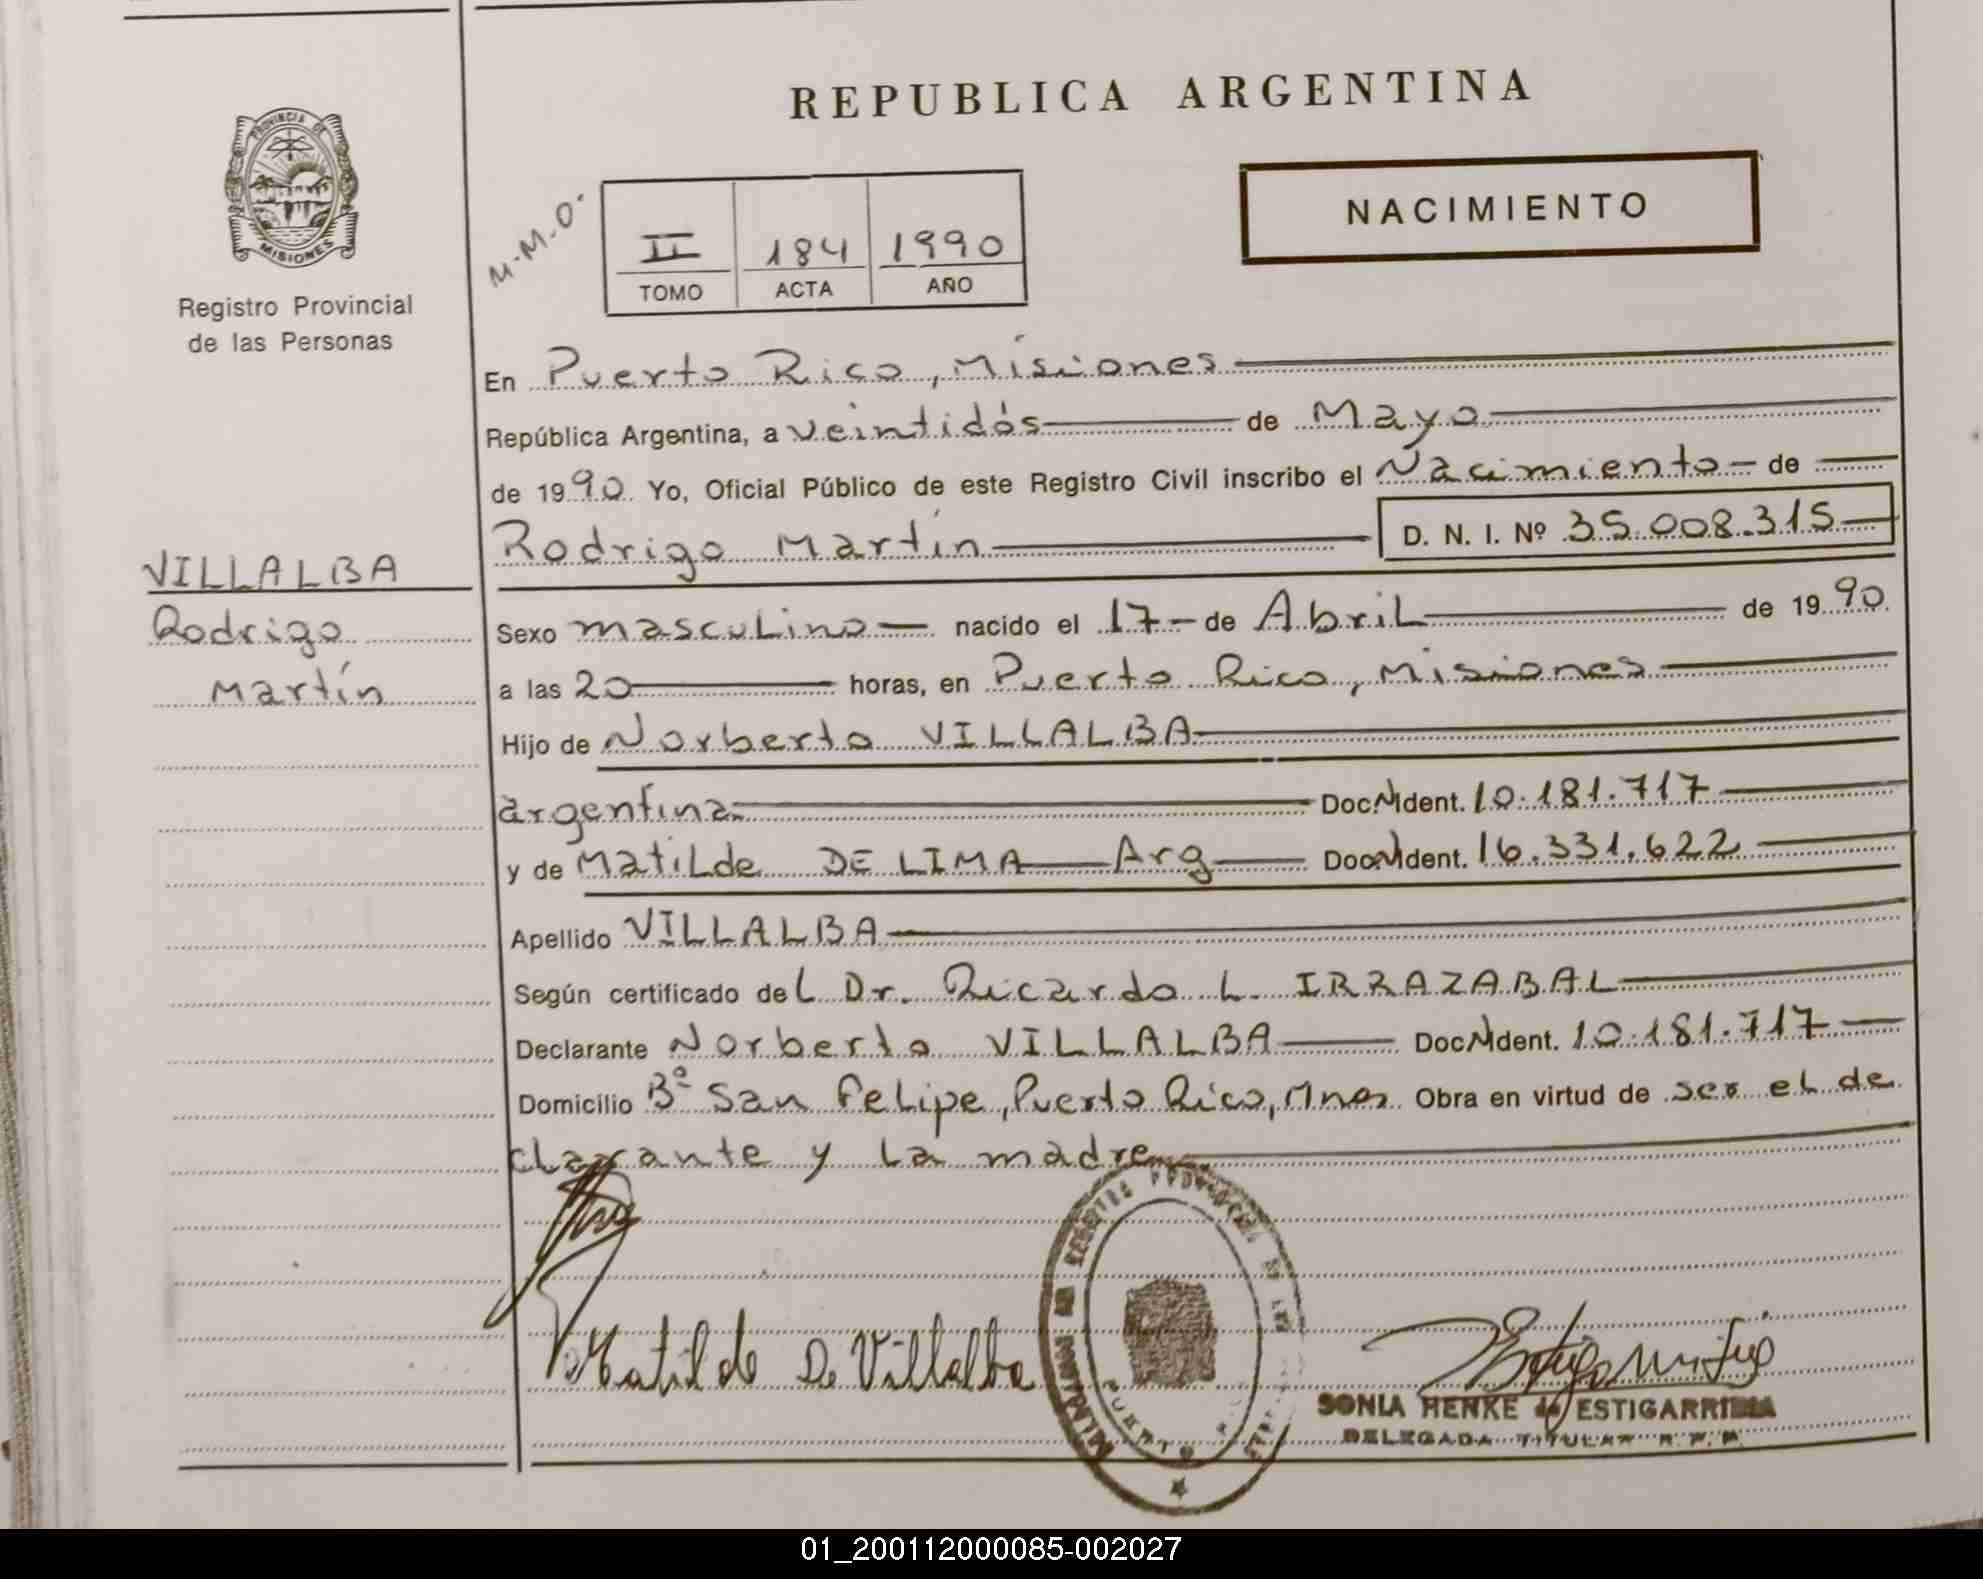 REPUBLICA ARGENTINA
PROVINCIA DE
MISIONES
Registro Provincial
de las Personas
M.M.O.
II 184 1990
TOMO ACTA AÑO
NACIMIENTO
En Puerto Rico, Misiones
República Argentina, a veintidós de Mayo
de 1990. Yo, Oficial Público de este Registro Civil inscribo el Nacimiento de
Rodrigo Martín D. N. I. Nº 35.008.315
VILLALBA
Rodrigo
Martín
Sexo masculino nacido el 17 de Abril de 1990.
a las 20 horas, en Puerto Rico, Misiones
Hijo de Norberto VILLALBA
argentina Doc. N Ident. 10.181.717
y de Matilde DE LIMA Arg Doc. N Ident. 16.331.622
Apellido VILLALBA
Según certificado del Dr. Ricardo L. IRRAZABAL
Declarante Norberto VILLALBA Doc. N Ident. 10.181.717
Domicilio Bº San Felipe, Puerto Rico, Mnes. Obra en virtud de ser el de
clarante y la madre
Matilde D. Villalba
SONIA HENKE de ESTIGARRIBIA
DELEGADA TITULAR R.P.P.
01_200112000085-002027